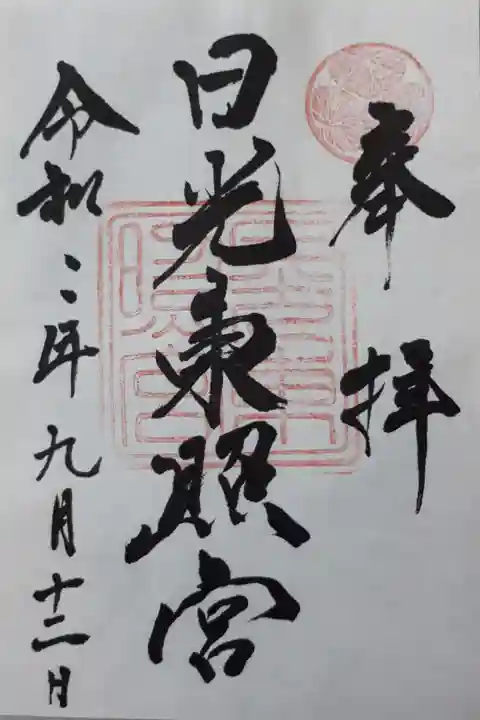 奉拝
日光東照宮
令和二年九月十二日
東照宮